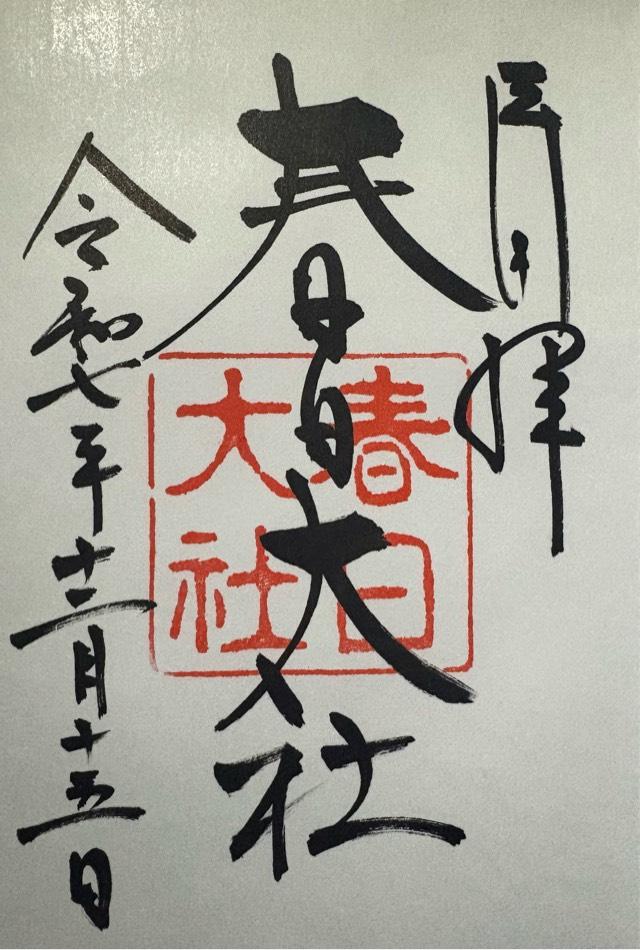 奉拝
春日大社
令和七年十二月十五日
春日
大社